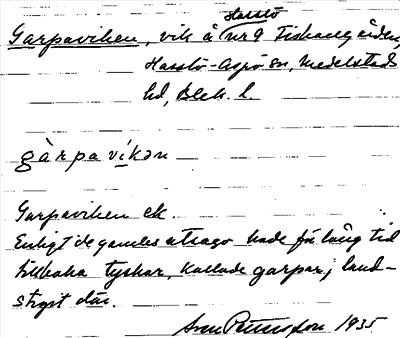 Hasslö
Garpaviken, vik å nr 9 Fiskaregården,
Hasslö-Aspö sn, Medelstads
hd, Blek. l.
gàrpavíkən
Garpaviken ek.
Enligt de gamles utsago hade för lång tid
tillbaka tyskar, kallade garpar, land-
stigit där.
Sven Petersson 1935